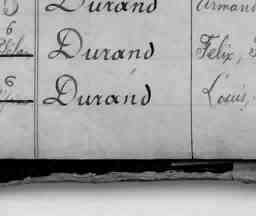 Durand Armand
6 Durand Felix,
6 Durand Louis,